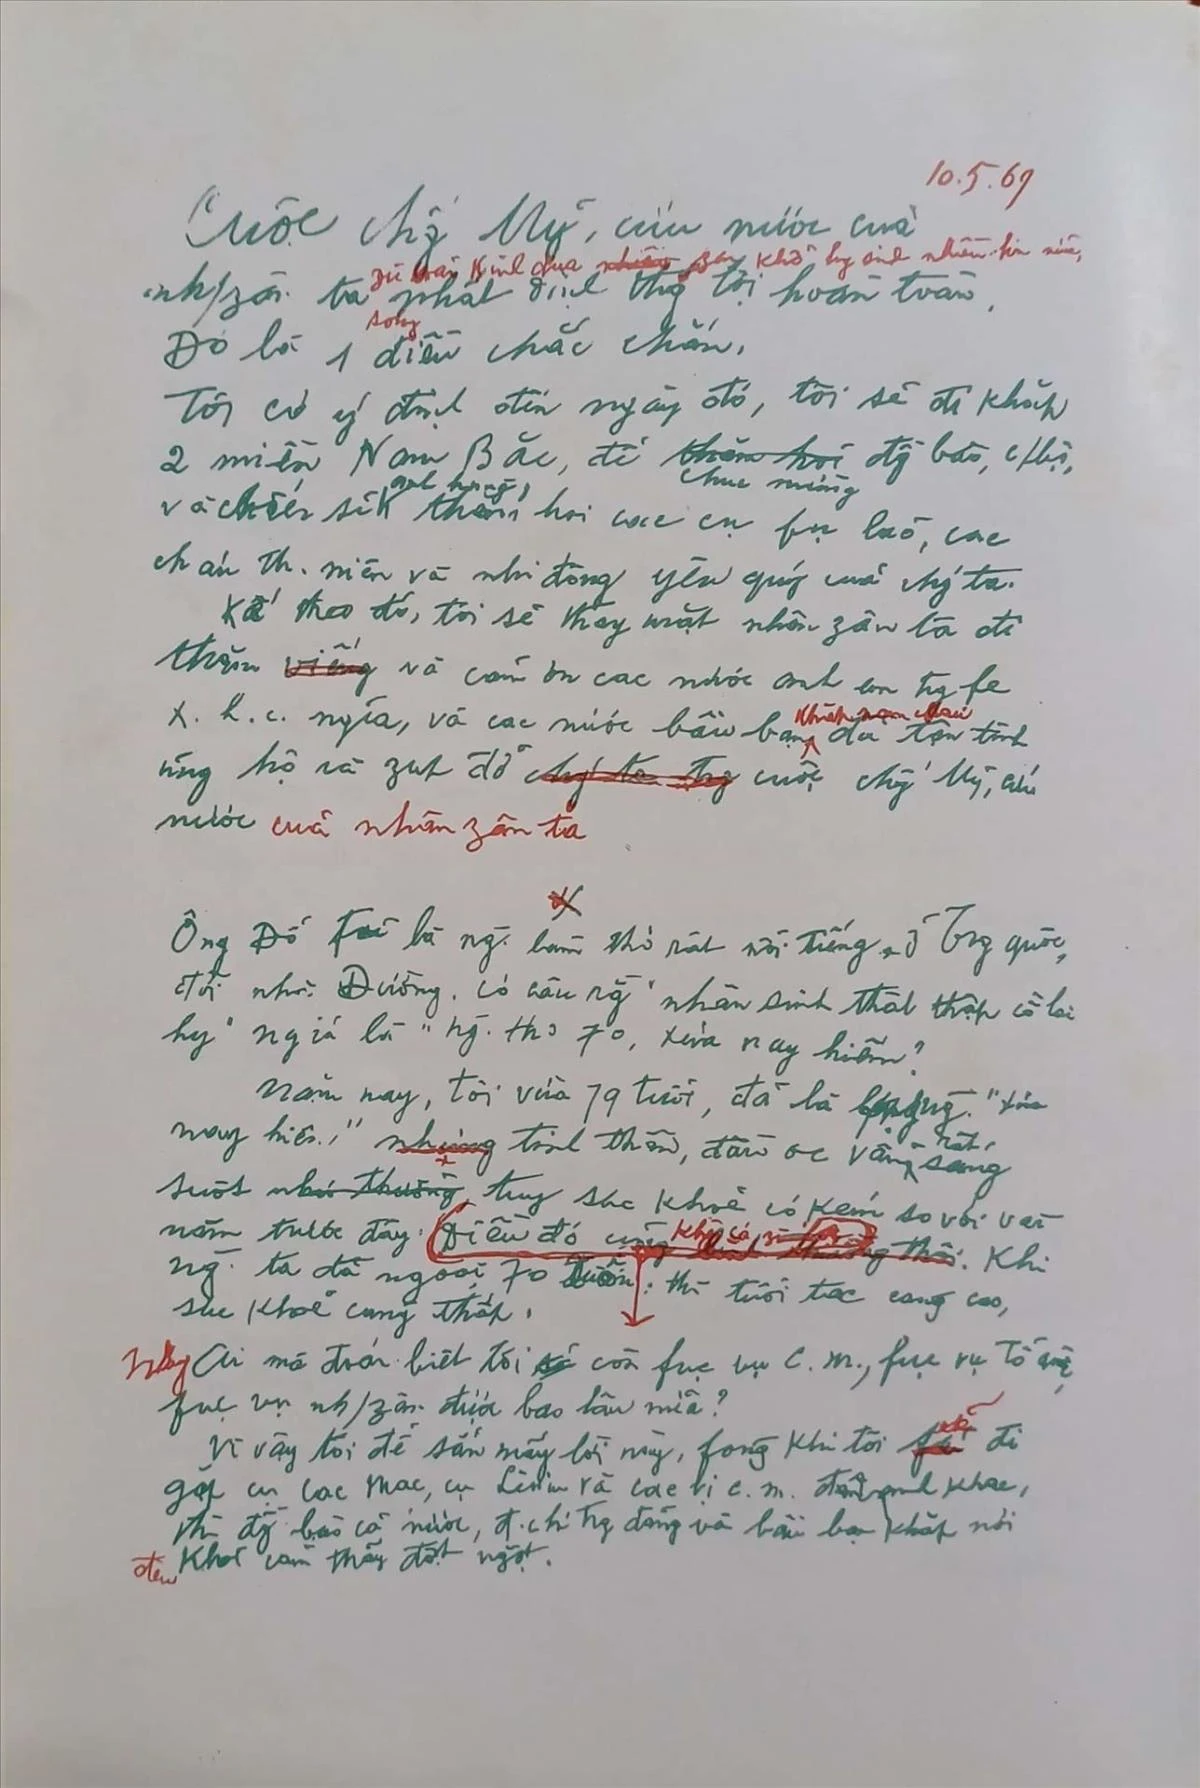 10.5.69
Cuộc chg Mỹ, cứu nước của
zù fải kinh qua nhiều zan khổ hy sinh nhiều hơn nữa,
nh/zân ta nhất định thg lợi hoàn toàn.
song
Đó là 1 điều chắc chắn.
Tôi có ý định đến ngày đó, tôi sẽ đi khắp
2 miền Nam Bắc, để thăm hỏi đg bào, c/bộ,
chúc mừng
anh hùng,
và chiến sĩ thăm hỏi các cụ fụ lão, các
cháu th. niên và nhi đồng yêu quý của chg ta.
Kế theo đó, tôi sẽ thay mặt nhân zân ta đi
thăm viếng và cám ơn các nước anh em tg fe
x. h. c. ngĩa, và các nước bầu bạn đã tận tình
khắp năm châu
ủng hộ và zúp đỡ chg ta tg cuộc chg Mỹ, cứu
nước của nhân zân ta
Ông Đỗ Fủ là ng. làm thơ rất nổi tiếng ở Trg quốc,
đời nhà Đường. có câu rg "nhân sinh thất thập cổ lai
hy" ngĩa là "ng. thọ 70, xưa nay hiếm".
Năm nay, tôi vừa 79 tuổi, đã là lớp ng. "xưa
nay hiếm" nhưng tinh thần, đầu óc vẫn rất sáng
suốt như thường, tuy sức khoẻ có kém so với vài
năm trước đây. Điều đó cũng khg có zì lạ bình thường thôi. Khi
ng. ta đã ngoài 70 xuân, thì tuổi tác càng cao,
sức khoẻ càng thấp.
Nhưng Ai mà đoán biết tôi sẽ còn fục vụ C. m., fục vụ Tổ quốc,
fục vụ nh/zân được bao lâu nữa?
Vì vậy tôi để sẵn mấy lời này, fòng khi tôi sẽ đi
gặp cụ Các Mác, cụ Lênin và các vị c. m. đàn anh khác,
thì đg bào cả nước, đ.chí tg đảng và bầu bạn khắp nơi
đều khỏi cảm thấy đột ngột.